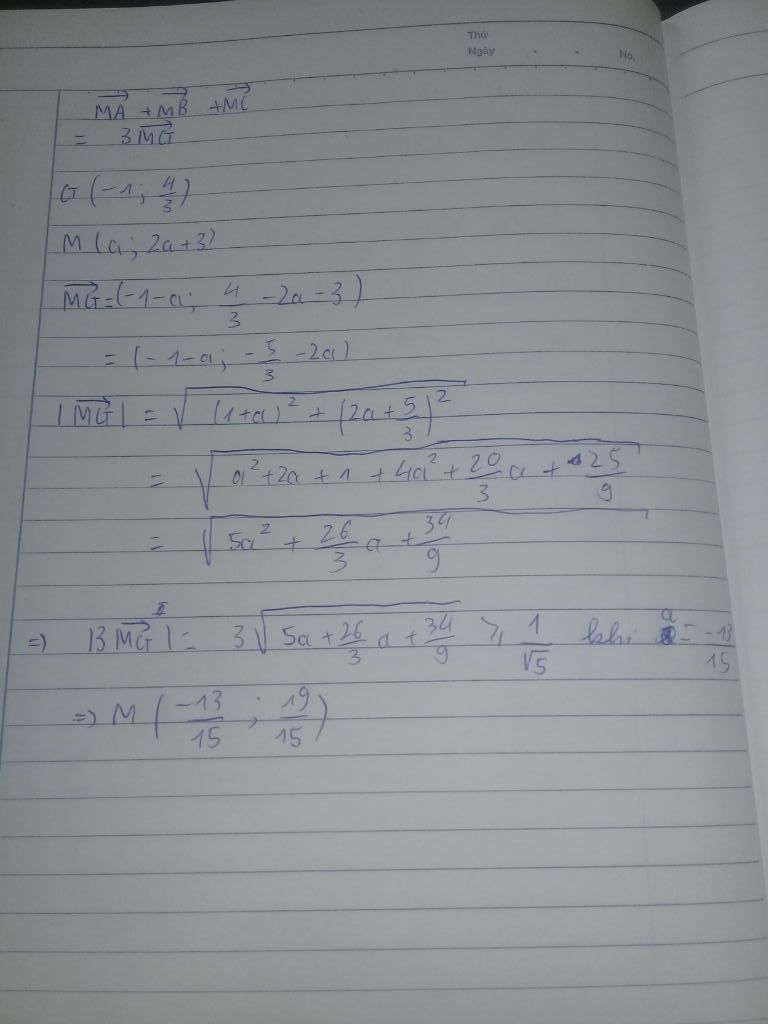 Thứ
Ngày . . No.
MA⃗ + MB⃗ + MC⃗
= 3MG⃗
G (-1 ; 4/3)
M (a ; 2a+3)
MG⃗ = (-1-a ; 4/3 -2a -3)
= (-1-a ; -5/3 -2a)
|MG⃗| = √((1+a)² + (2a + 5/3)²)
= √(a² + 2a + 1 + 4a² + 20/3 a + 25/9)
= √(5a² + 26/3 a + 34/9)
=> |3MG⃗| = 3√(5a + 26/3 a + 34/9) ≥ 1/√5 khi a = -13/15
=> M (-13/15 ; 19/15)